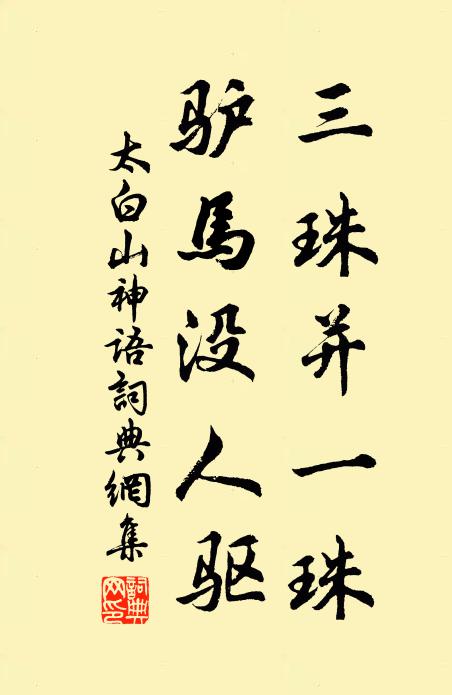 三珠并一珠
驴馬没人驱
太白山神语詞典網集
詞典網印